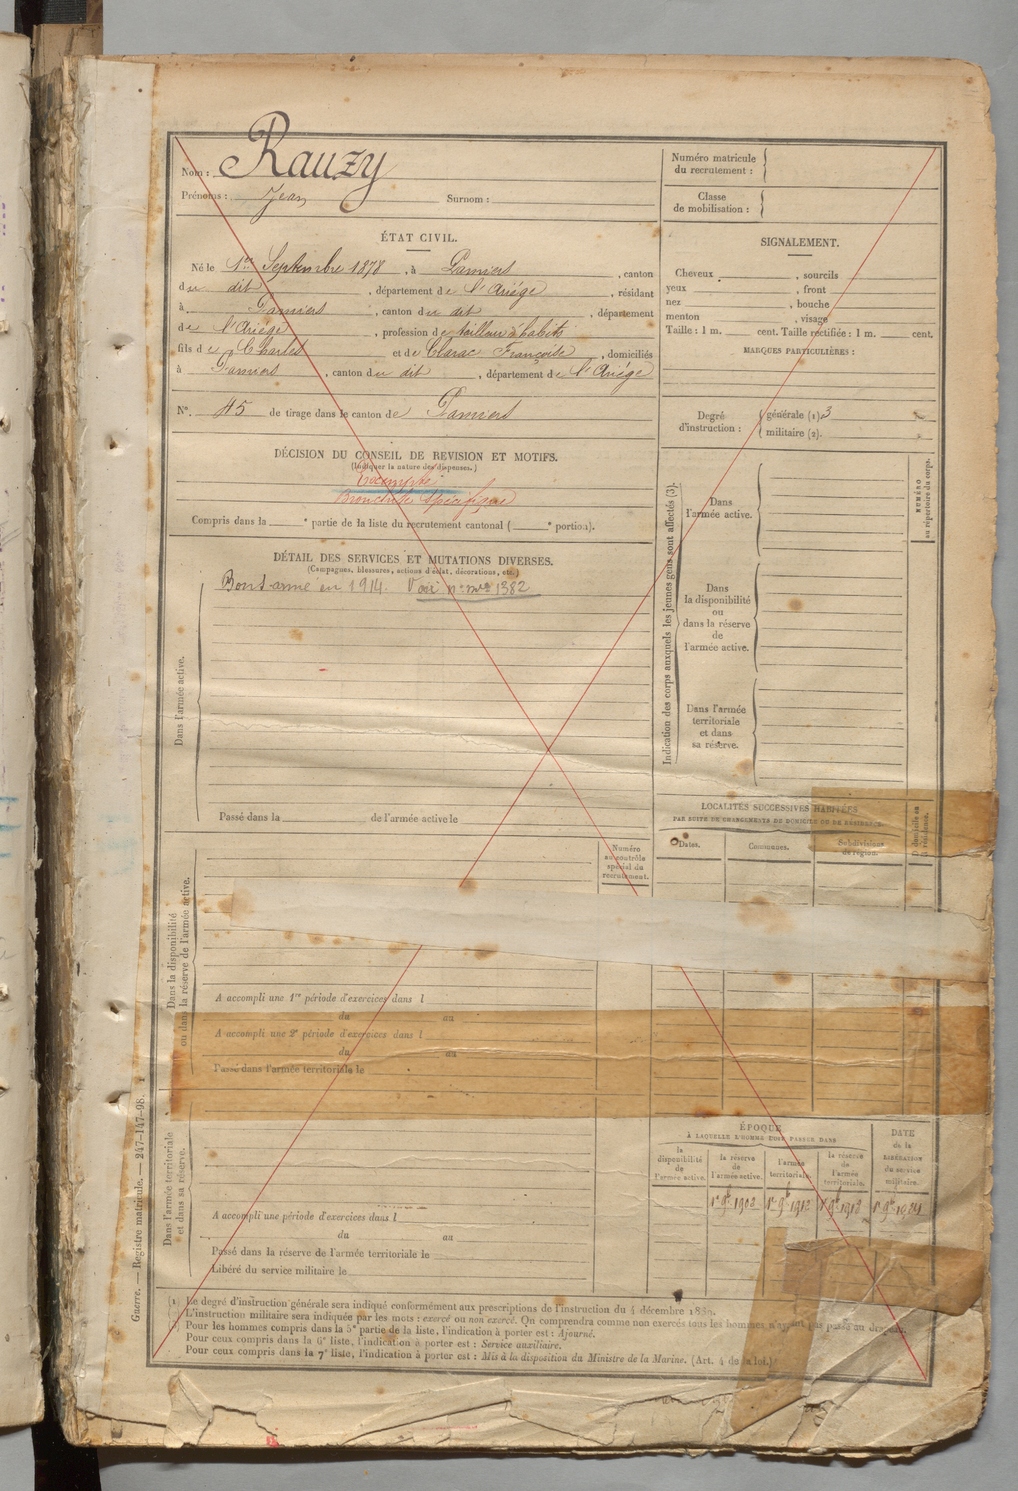 Nom : Rauzy
Prénoms : Jean Surnom :
Numéro matricule
du recrutement :
Classe
de mobilisation :
ÉTAT CIVIL.
Né le 1er Septembre 1878, à Pamiers, canton
du dit, département de l'Ariége, résidant
à Pamiers, canton du dit, département
de l'Ariége, profession de tailleur d'habits
fils de Charles et de Clarac Françoise, domiciliés
à Pamiers, canton du dit, département de l'Ariége
N°. 45 de tirage dans le canton de Pamiers
SIGNALEMENT.
Cheveux , sourcils
yeux , front
nez , bouche
menton , visage
Taille : 1 m. cent. Taille rectifiée : 1 m. cent.
MARQUES PARTICULIÈRES :
Degré
d'instruction :
générale (1) 3
militaire (2).
DÉCISION DU CONSEIL DE REVISION ET MOTIFS.
(Indiquer la nature des dispenses.)
Exempté
Bronchite spécifique
Compris dans la e partie de la liste du recrutement cantonal ( e portion).
DÉTAIL DES SERVICES ET MUTATIONS DIVERSES.
(Campagnes, blessures, actions d'éclat, décorations, etc.)
Bon s. armé en 1914. Voir no mle 1382
Dans l'armée active.
Passé dans la de l'armée active le
Indication des corps auxquels les jeunes gens sont affectés (3).
NUMÉRO
au répertoire du corps.
Dans
l'armée active.
Dans
la disponibilité
ou
dans la réserve
de
l'armée active.
Dans l'armée
territoriale
et dans
sa réserve.
LOCALITÉS SUCCESSIVES HABITÉES
PAR SUITE DE CHANGEMENTS DE DOMICILE OU DE RÉSIDENCE.
Dates.
Communes.
Subdivisions
de région.
D domicile ou
R résidence.
Numéro
au contrôle
spécial du
recrutement.
Dans la disponibilité
ou dans la réserve de l'armée active.
A accompli une 1re période d'exercices dans l
du au
A accompli une 2e période d'exercices dans l
du au
Passé dans l'armée territoriale le
Dans l'armée territoriale
et dans sa réserve.
A accompli une période d'exercices dans l
du au
Passé dans la réserve de l'armée territoriale le
Libéré du service militaire le
ÉPOQUE
À LAQUELLE L'HOMME DOIT PASSER DANS
la
disponibilité
de
l'armée active.
la réserve
de
l'armée active.
l'armée
territoriale.
la réserve
de
l'armée
territoriale.
DATE
de la
LIBÉRATION
du service
militaire.
1er 9b 1902 1er 9b 1912 1er 9b 1918 1er 9b 1924
Guerre. — Registre matricule. — 247-147-98.
(1) Le degré d'instruction générale sera indiqué conformément aux prescriptions de l'instruction du 4 décembre 1889.
L'instruction militaire sera indiquée par les mots : exercé ou non exercé. On comprendra comme non exercés tous les hommes n'ayant pas passé au drapeau.
Pour les hommes compris dans la 5e partie de la liste, l'indication à porter est : Ajourné.
Pour ceux compris dans la 6e liste, l'indication à porter est : Service auxiliaire.
Pour ceux compris dans la 7e liste, l'indication à porter est : Mis à la disposition du Ministre de la Marine. (Art. 4 de la loi.)